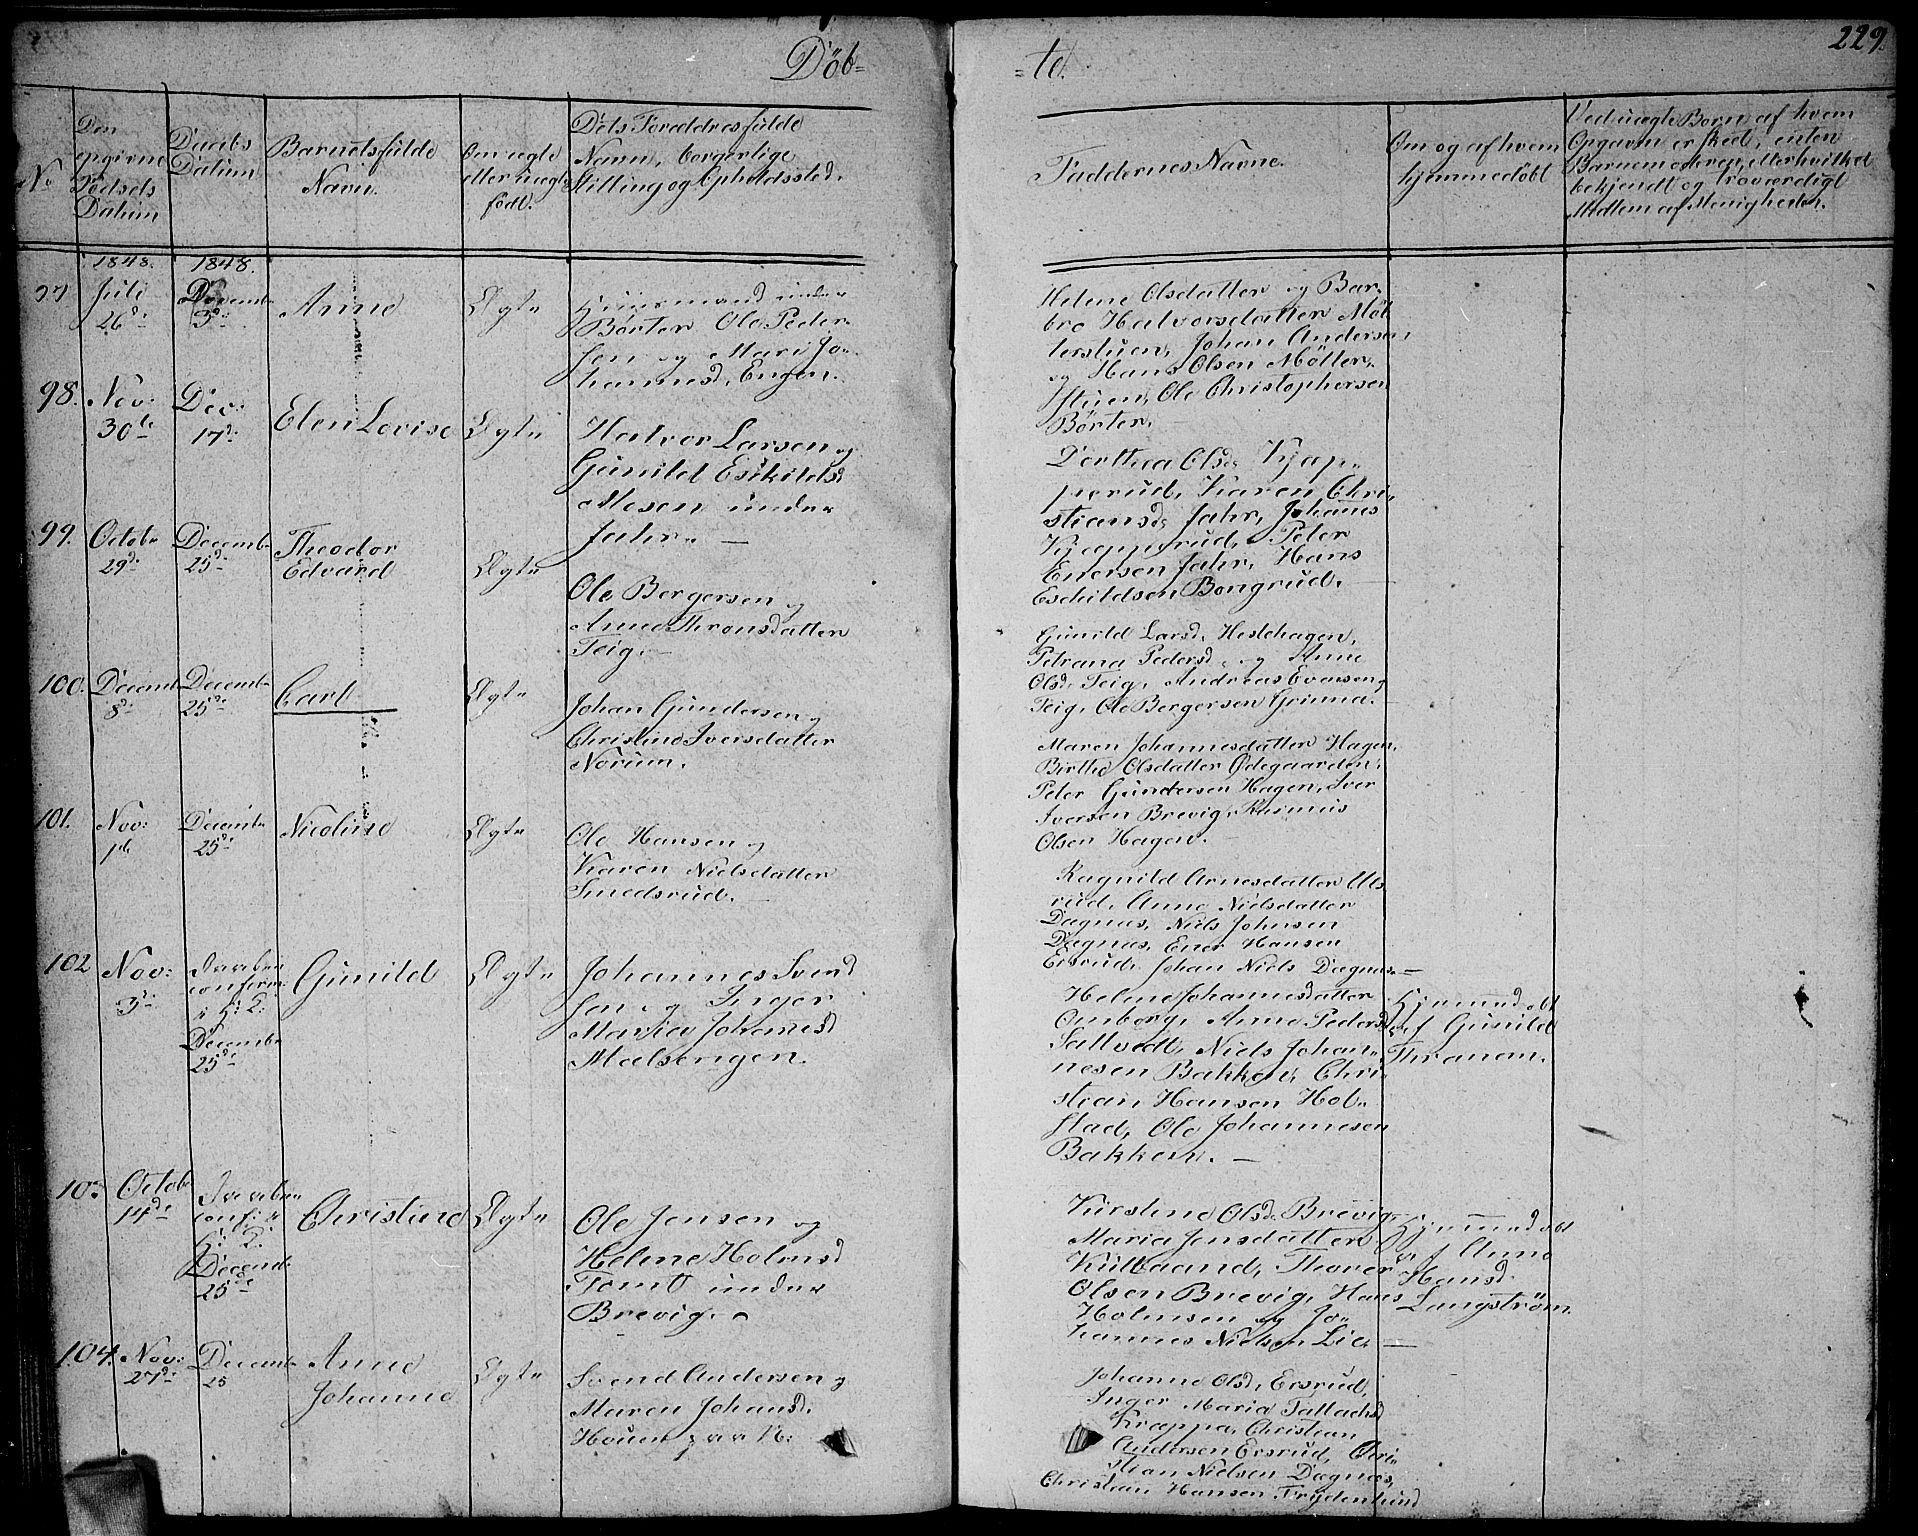 Döb=
=te.
229.
No
Den
opgivne
Födsels
Datum
Daabs
Datum
Barnets fulde
Navn.
Om ægte
eller uægte
födt.
Dets Forældres fulde
Navn, borgerlige
Stilling og Opholdssted.
Faddernes Navne.
Om og af hvem
hjemmedöbt
Ved uægte Börn af hvem
Opgaven er skeed, enten
Barnemoderen, eller hvilket
bekjendt og troværdigt
Medlem af Menigheden.
1848.
1848.
97
Juli
26de
3de
Anne
Ægte
Huusmand under
Börter Ole Peder-
sen og Mari Jo-
hannesd, Engen.
Helene Olsdatter og Bar-
bro Halvorsdatter Möl
lerstuen, Johan Andersen,
og Hans Olsen Möller-
stuen, Ole Christophersen
Börter.
98.
Nov:
30te
Dec:
17de
Elen Lovise
Ægte
Halvor Larsen og
Gunild Eskildsd
Mosen under
Jahr. —
Dorthea Olsd, Kjap-
perud, Karen Chri-
stiansd, Jahr, Johannes
Kjepperud, Peter
Enersen Jahr, Hans
Eschildsen Bongrud.
99.
Octobr
29de
Decembr
25de
Theodor
Edvard
Ægte
Ole Bergersen og
Anne Thronsdatter
Teig. —
Gunild Larsd, Heslehagen,
Petrana Pedersd, og Anne
Olsd, Teig, Andreas Evensen
Teig, Ole Bergersen Grinna.
100.
Decembr
8de
Decembr
25de
Carl
Ægte
Johan Gundersen og
Christine Iversdatter
Norum.
Maren Johannesdatter Hagen,
Birthe Olsdatter Ödegaarden,
Peter Gundersen Hagen, Iver
Iversen Brevig, Rasmus
Olsen Hagen. —
101.
Nov:
1ste
Decembr
25de
Nicoline
Ægte
Ole Hansen og
Karen Nielsdatter
Smedsrud. —
Ragnild Arnesdatter Uls
rud, Anne Nielsdatter
Dægnæs, Niels Johnsen
Dægnæs, Ener Hansen
Ersrud, Johan Niels Dægnæs —
102
Nov:
3de
Daaben
conferm:
i H: K:
Decembr
25de
Gunild
Ægte
Johannes Svend
sen og Inger
Maria Johannesd
Mælsengen.
Helene Johannesdatter
Omberg, Anne Pedersd
Sallvedt, Niels Johan-
nesen Bakken, Chri-
stian Hansen Hol-
stad, Ole Johannesen
Bakken. —
Hjemmedöbt
af Gunild
Thranan.
103
Octobr
14de
Daaben
conf: i
H: K:
Decemb.
25de
Christine
Ægte
Ole Jensen og
Helene Holmsd
Tomt under
Brevig.
Kirstine Olsd, Brevig,
Maria Jensdatter
Kulbrand, Thorer
Olsen Brevig, Hans
Holmsen og Jo-
hannes Nielsen Lie. —
Hjemmedöbt
af Anne
Hansd
Langström
104.
Nov:
27de
Decembr
25
Anne
Johanne
Ægte
Svend Andersen og
Maren Johansd.
Houen paa N:
Johanne Olsd, Ersrud,
Inger Maria Tallachsd
Kræppa, Christian
Andersen Ersrud, Chri-
stian Nielsen Dægnæs,
Christian Hansen Frydenlund